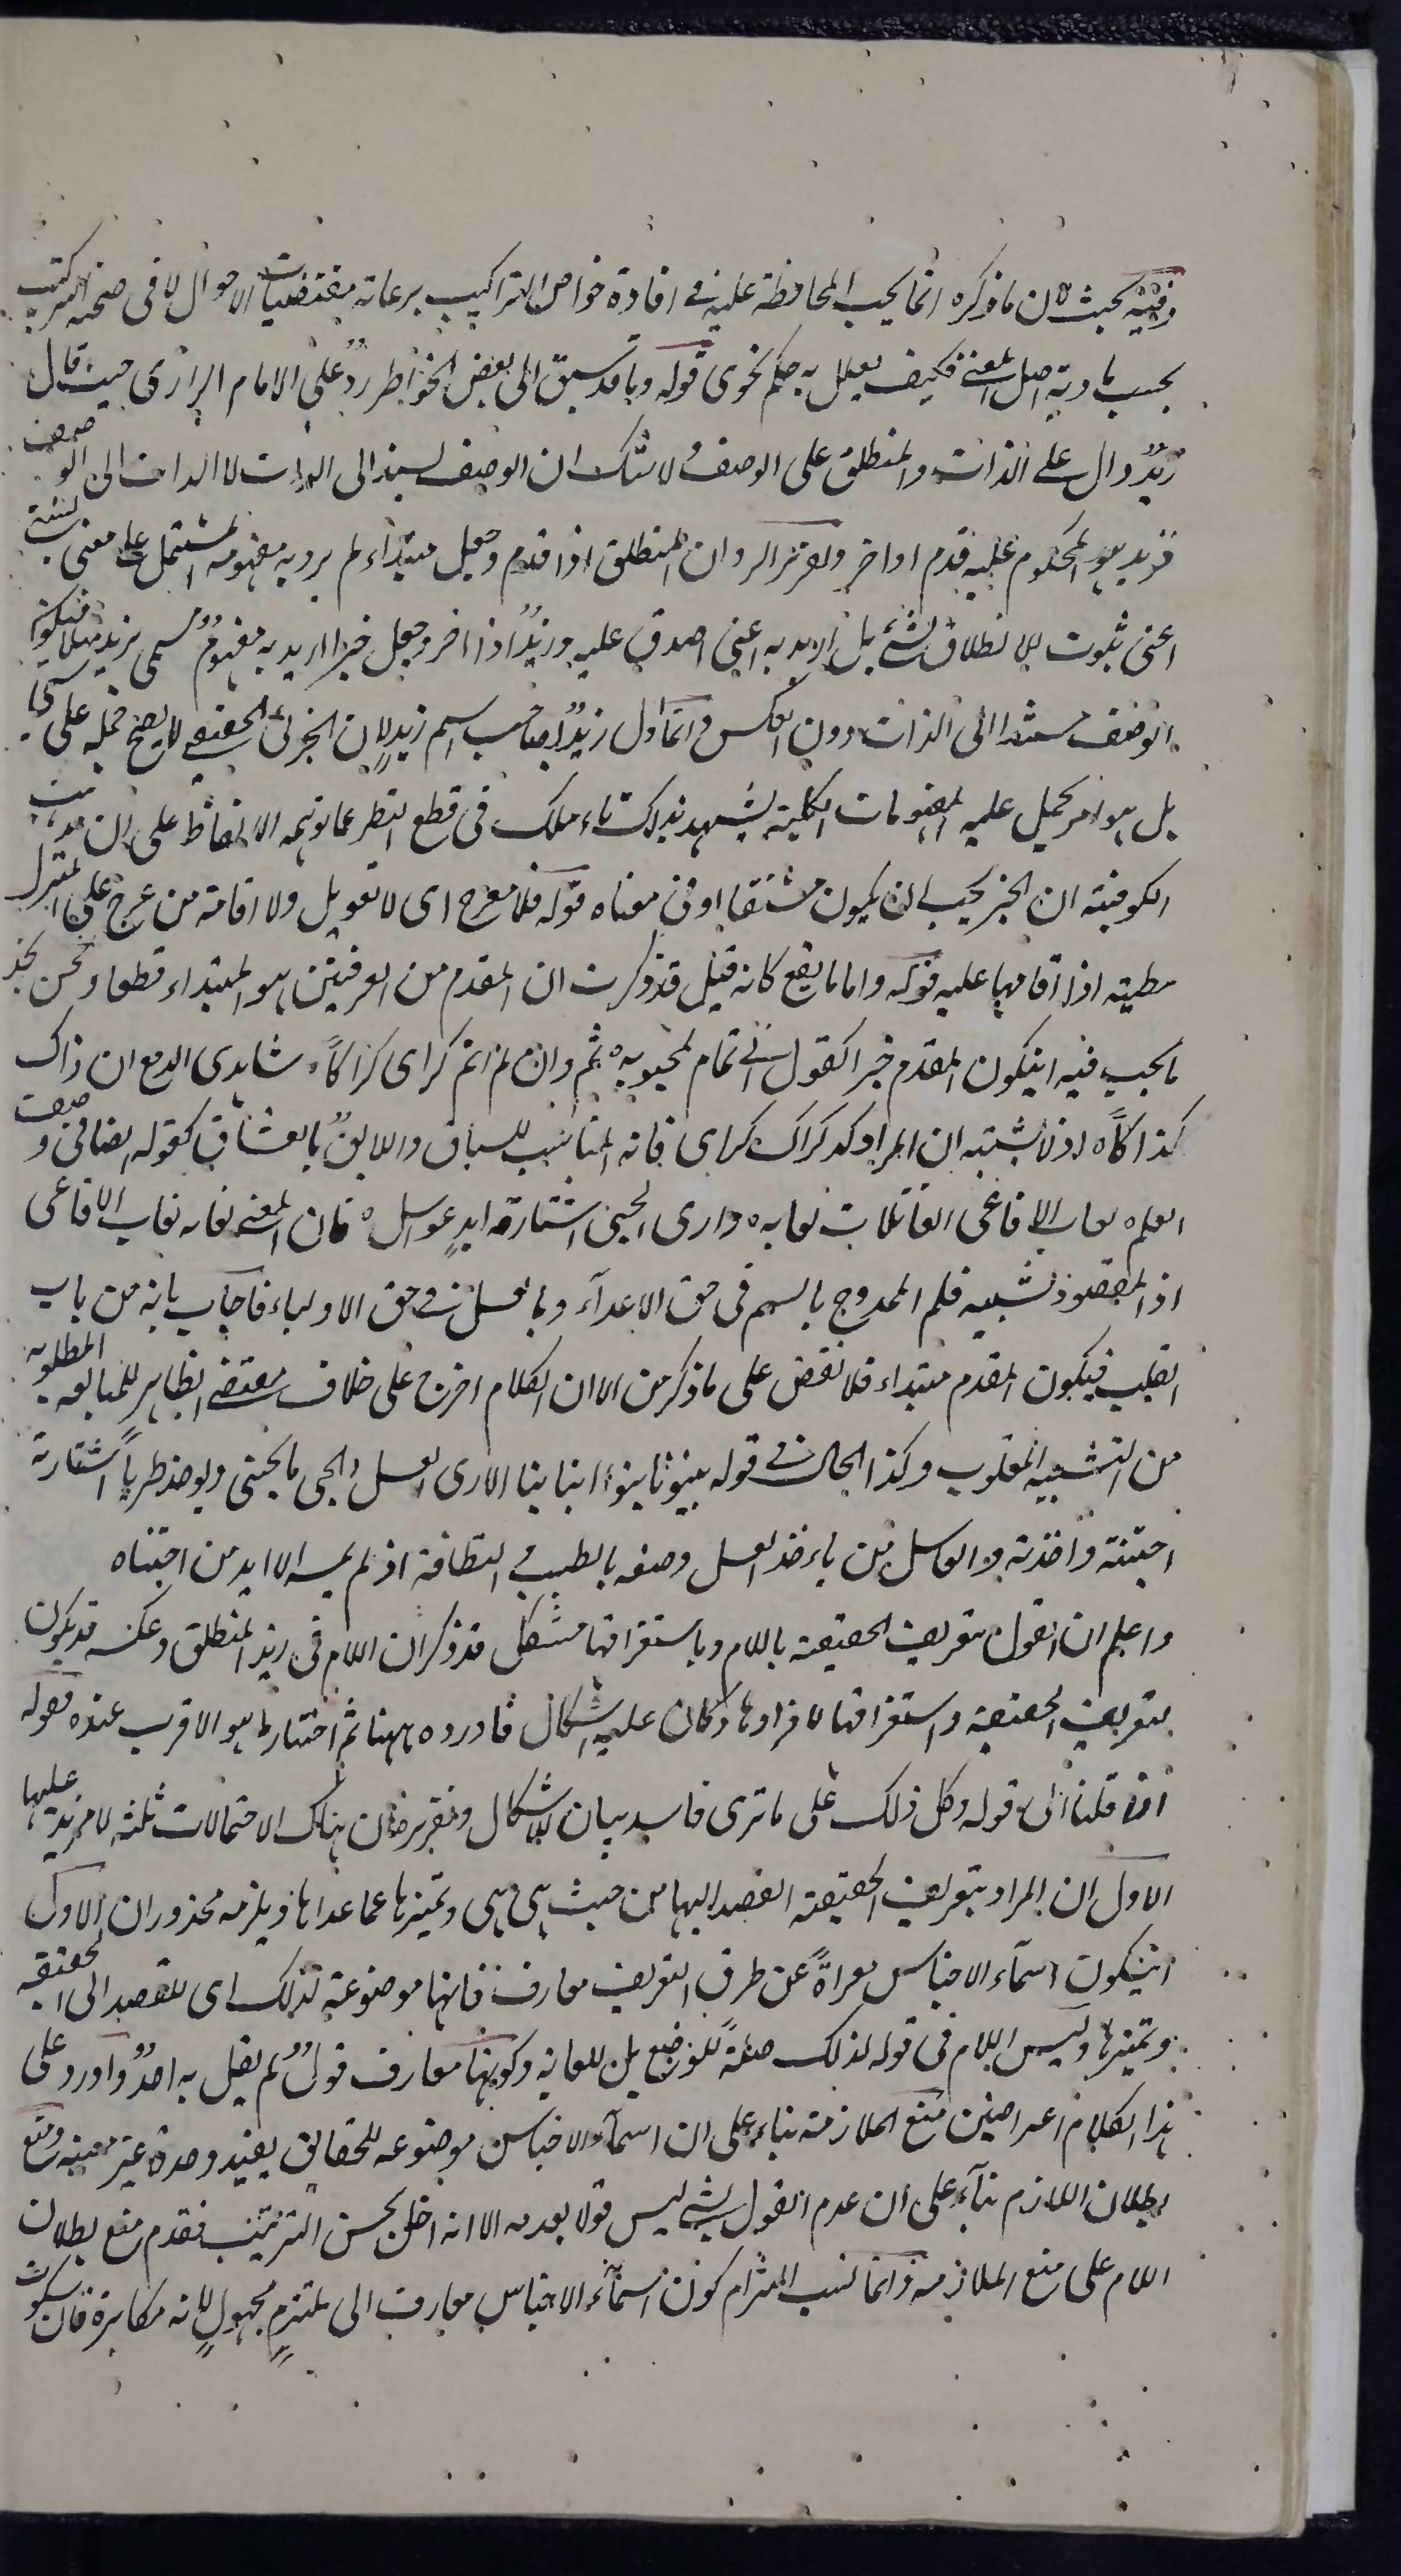 وفيه بحث لان ما ذكره انما يجب المحافظة عليه في افادة خواص التراكيب برعاية مقتضيات الاحوال لا في صحة التركيب
بحسب تادية اصل المعنى فكيف يعلل به حكم نحوى قوله وما قد سبق الى بعض الخواطر ردٌ على الامام الرازى حيث قال
زيدٌ دال على الذات والمنطلق على الوصف ولا شك ان الوصف يسند الى الذات لا الذات الى الوصف
فزيد هو المحكوم عليه قدم او اخر وتقرير الرد ان المنطلق اذا قدم وجعل مبتداء لم يرد به مفهومه المشتمل على معنى نسبى
اعنى ثبوت الانطلاق لشئ بل اريد به اعنى ما صدق عليه وزيدٌ اذا اخر وجعل خبرا اريد به مفهومٌ مسمى بزيد مثلا فيكون
الوصف مسندا الى الذات دون العكس وانما اول زيدٌ بصاحب اسم زيدٍ لان الجزئى الحقيقى لا يصح حمله على شئ
بل هو امر يحمل عليه المفهومات الكلية يشهد بذلك تاملك في قطع النظر عما توهمه الالفاظ على ان مذهب
الكوفية ان الخبر يجب ان يكون مشتقا او في معناه قوله فلا معرج اى لا تعويل ولا اقامة من عرج على المنزل
مطيته اذا اقامها عليه قوله واما ما يقع كانه قيل قد ذكرت ان المقدم من المعرفتين هو المبتداء قطعا ونحن نجد
ما يجب فيه ان يكون المقدم خبرا كقول ابى تمام لمحبوبه ثم وان لم انم كراى كراكاً شاهدى الدمع ان ذاك
كذاكاً اذ لا يشتبه ان المراد كراك كراى فانه المناسب للسياق واللايق بالعشاق كقوله ايضا في وصف
القلم لعاب الافاعى القاتلات لعابه وارى الجنى اشتارته ايدٍ عواسل فان المعنى لعابه لعاب الافاعى
اذ المقصود تشبيه قلم الممدوح بالسم في حق الاعداء وبالعسل في حق الاولياء فاجاب بانه من باب
القلب فيكون المقدم مبتداء فلا نقض على ما ذكر من الا ان الكلام اخرج على خلاف مقتضى الظاهر للمبالغة المطلوبة
من التشبيه المقلوب وكذا الحال في قوله بنونا بنو ابناينا الارى العسل والجنى ما يجتنى ويوخذ طرياً اشتارته
اجتنته واخذته والعاسل من ياخذ العسل وصفه بالطيب في النظافة اذ لم يمسه الا ايد من اجتناه
واعلم ان القول بتعريف الحقيقة باللام وباستغراقها مشكل قد ذكر ان اللام في زيد المنطلق وعكسه قد يكون
لتعريف الحقيقة واستغراقها لافرادها وكان عليه اشكال فاورده ههنا ثم اختار ما هو الاقرب عنده فقوله
اذا قلنا الى قوله وكل ذلك على ما ترى فاسد بيان للاشكال وتقريره ان هناك الاحتمالات ثلثة لا مزيد عليها
الاول ان المراد بتعريف الحقيقة القصد اليها من حيث هى هى وتميزها عما عداها ويلزمه محذوران الاول
ان يكون اسماء الاجناس معراةً عن طرق التعريف معارف فانها موضوعة لذلك اى للقصد الى الحقيقة
وتميزها وليس اللام في قوله لذلك صلةً للوضع بل للغاية وكونها معارف قولٌ لم يقل به احدٌ واورد على
هذا الكلام اعتراضين منع الملازمة بناء على ان اسماء الاجناس موضوعه للحقايق بقيد وحدة غير معينة ومنع
بطلان اللازم بناء على ان عدم القول بشئ ليس قولا بعدمه الا انه اخل بحسن الترتيب فقدم منع بطلان
اللازم على منع الملازمة وانما نسب التزام كون اسماء الاجناس معارف الى ملتزمٍ مجهولٍ لانه مكابرة فان سكوت